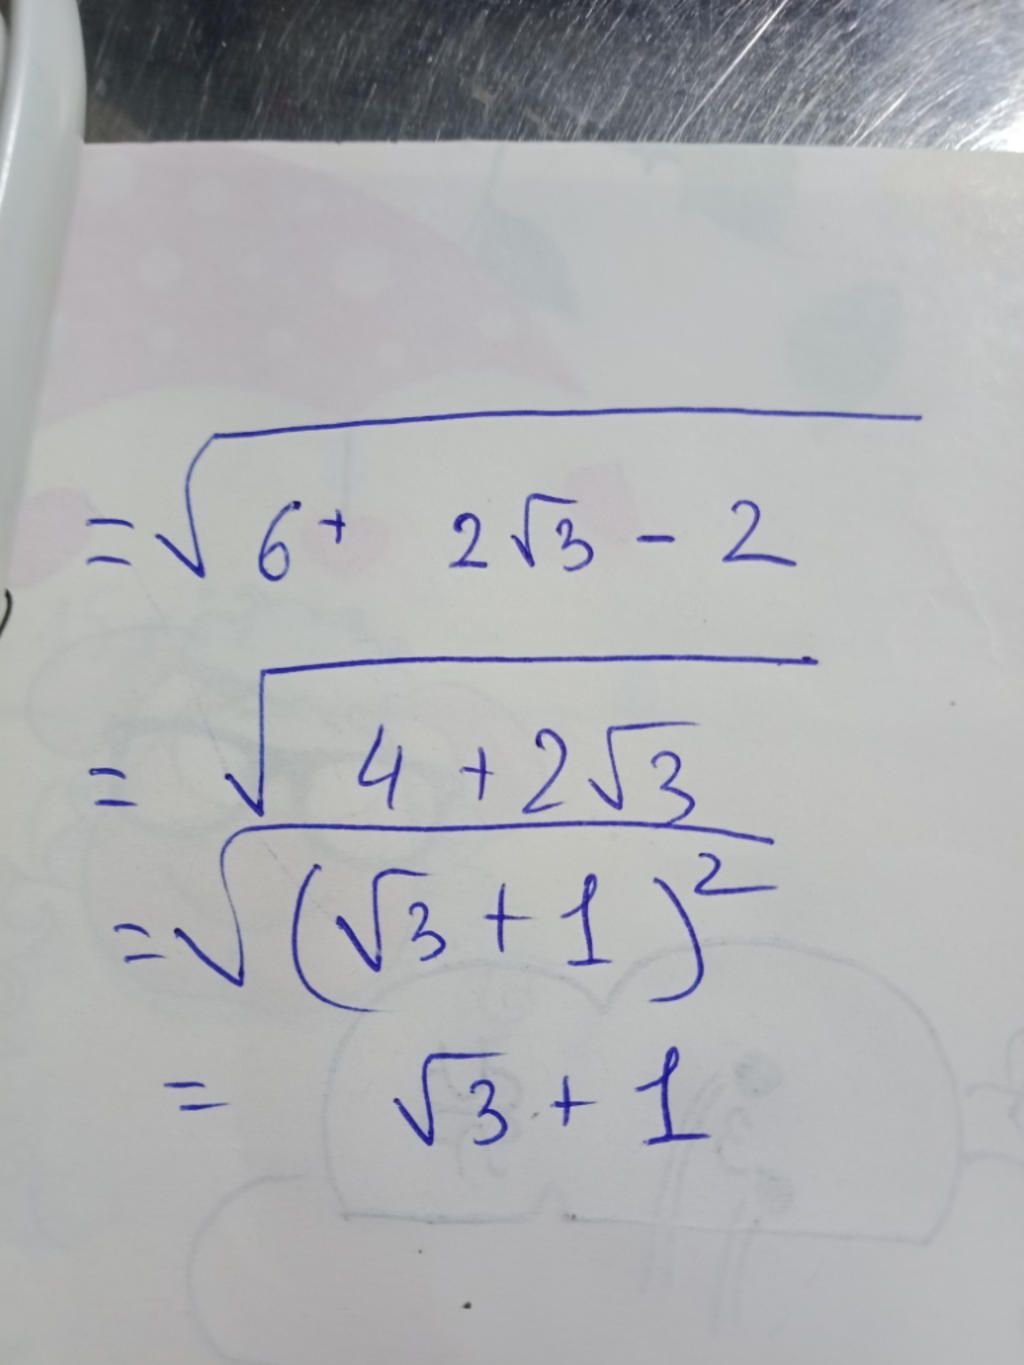 = √(6 + 2√3 - 2)
= √(4 + 2√3)
= √((√3 + 1)²)
= √3 + 1